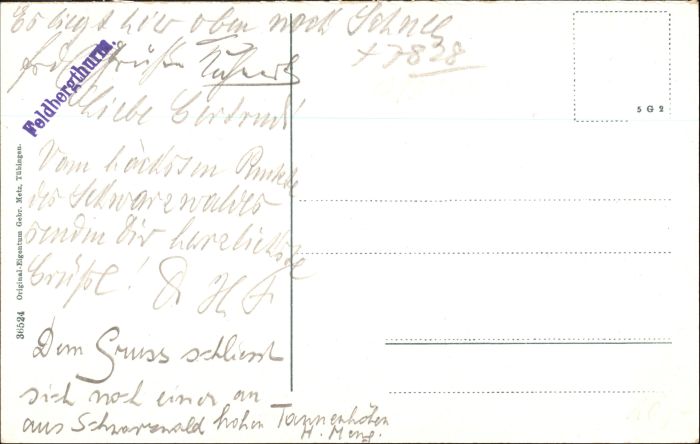 Es liegt hier oben noch Schnee
frdl. Grüße
+ 7828
Feldbergthurm.
Liebe Gertrud!
Vom höchsten Punkte
des Schwarzwaldes
senden Dir herzlichste
Grüße!
Dem Gruss schliesst
sich noch einer an
aus Schwarzwald hohen Tannenhöhen
H. Meng.
36524 Original-Eigentum Gebr. Metz, Tübingen.
5 G 2